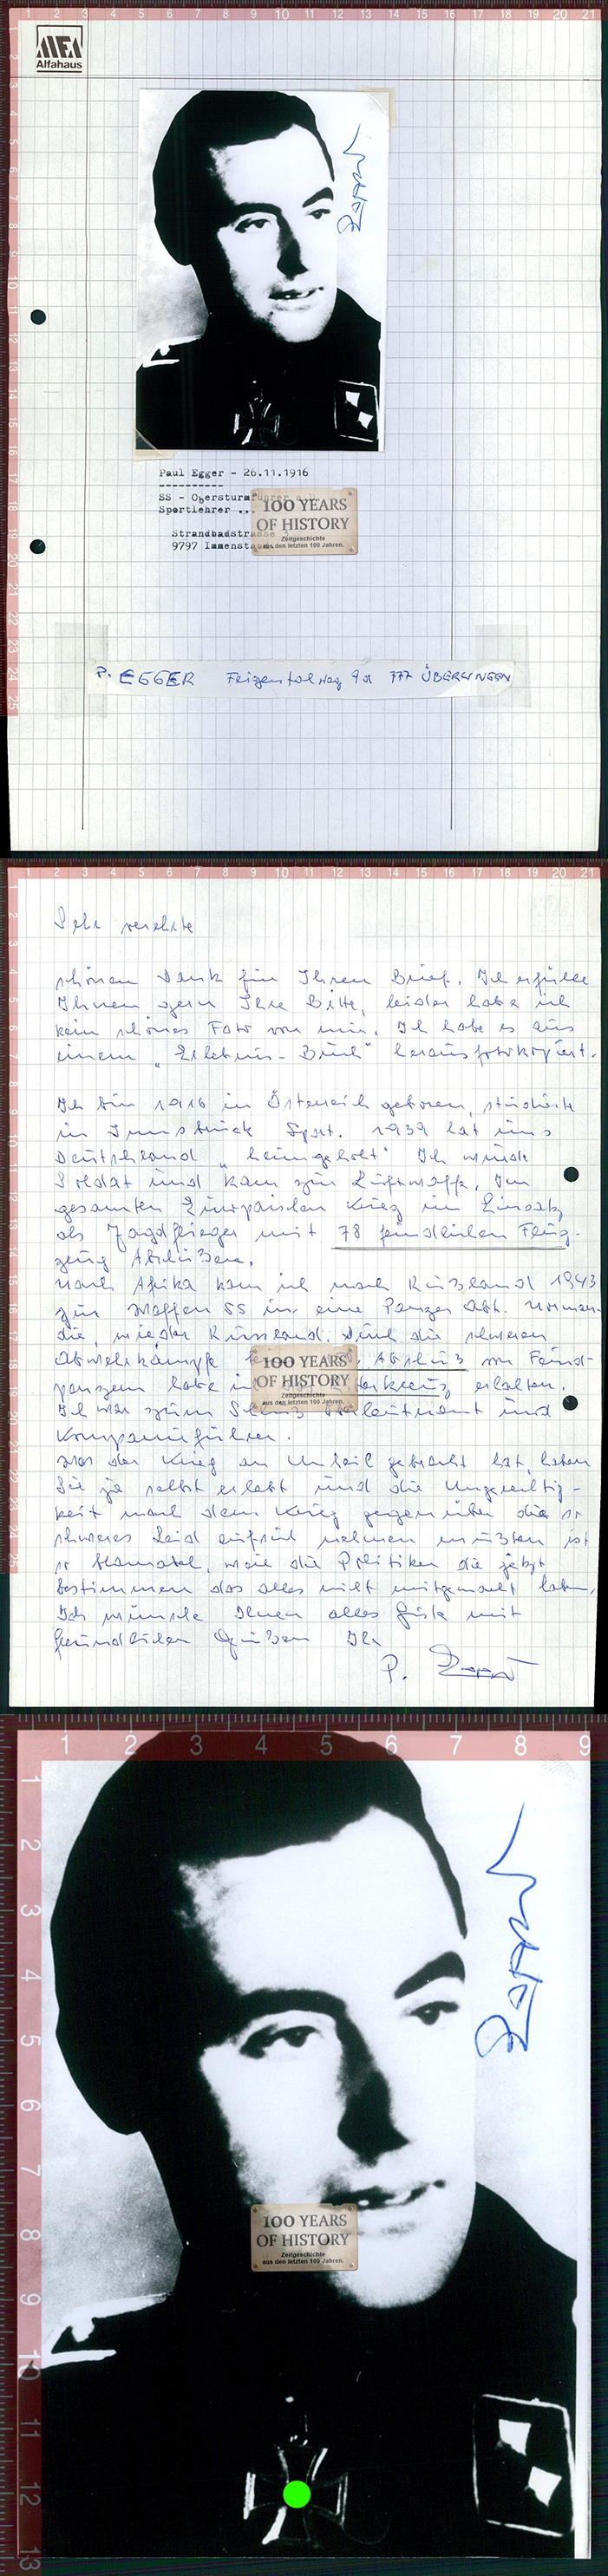 Alfahaus
Paul Egger - 26.11.1916
SS - Obersturmführer
Sportlehrer ...
Strandbadstrasse
9797 Immensta
100 YEARS
OF HISTORY
Zeitgeschichte
aus den letzten 100 Jahren.
P. EGGER Feigentalweg 9a 777 ÜBERLINGEN
Sehr verehrte
schönen Dank für Ihren Brief. Ich erfülle
Ihnen gern Ihre Bitte, leider habe ich
kein schönes Foto von mir. Ich habe es aus
einem "Erlebnis-Buch" herausfotokopiert.
Ich bin 1916 in Österreich geboren, studierte
in Innsbruck Sport. 1939 hat uns
Deutschland "heimgeholt" Ich wurde
Soldat und kam zur Luftwaffe. Im
gesamten Europäischen Krieg im Einsatz
als Jagdflieger mit 78 feindlichen Flug-
zeug Abschüßen.
Nach Afrika kam ich nach Rußland 1943
zur Waffen SS in eine Panzer Abt. Norman-
die, wieder Russland. Durch die schweren
Abwehrkämpfe Abschuß von Feind-
panzern habe ich erhalten.
Ich war zum Schluß und
Kompanieführer.
Was der Krieg an Unheil gebracht hat, haben
Sie ja selbst erlebt und die Ungerechtig-
keit nach dem Krieg gegenüber die so
schweres Leid auf sich nehmen mußten ist
so blamabel, weil die Politiker die jetzt
bestimmen das alles nicht mitgemacht haben.
Ich wünsche Ihnen alles Gute mit
freundlichen Grüßen Ihr
P. Egger
100 YEARS
OF HISTORY
Zeitgeschichte
aus den letzten 100 Jahren.
100 YEARS
OF HISTORY
Zeitgeschichte
aus den letzten 100 Jahren.